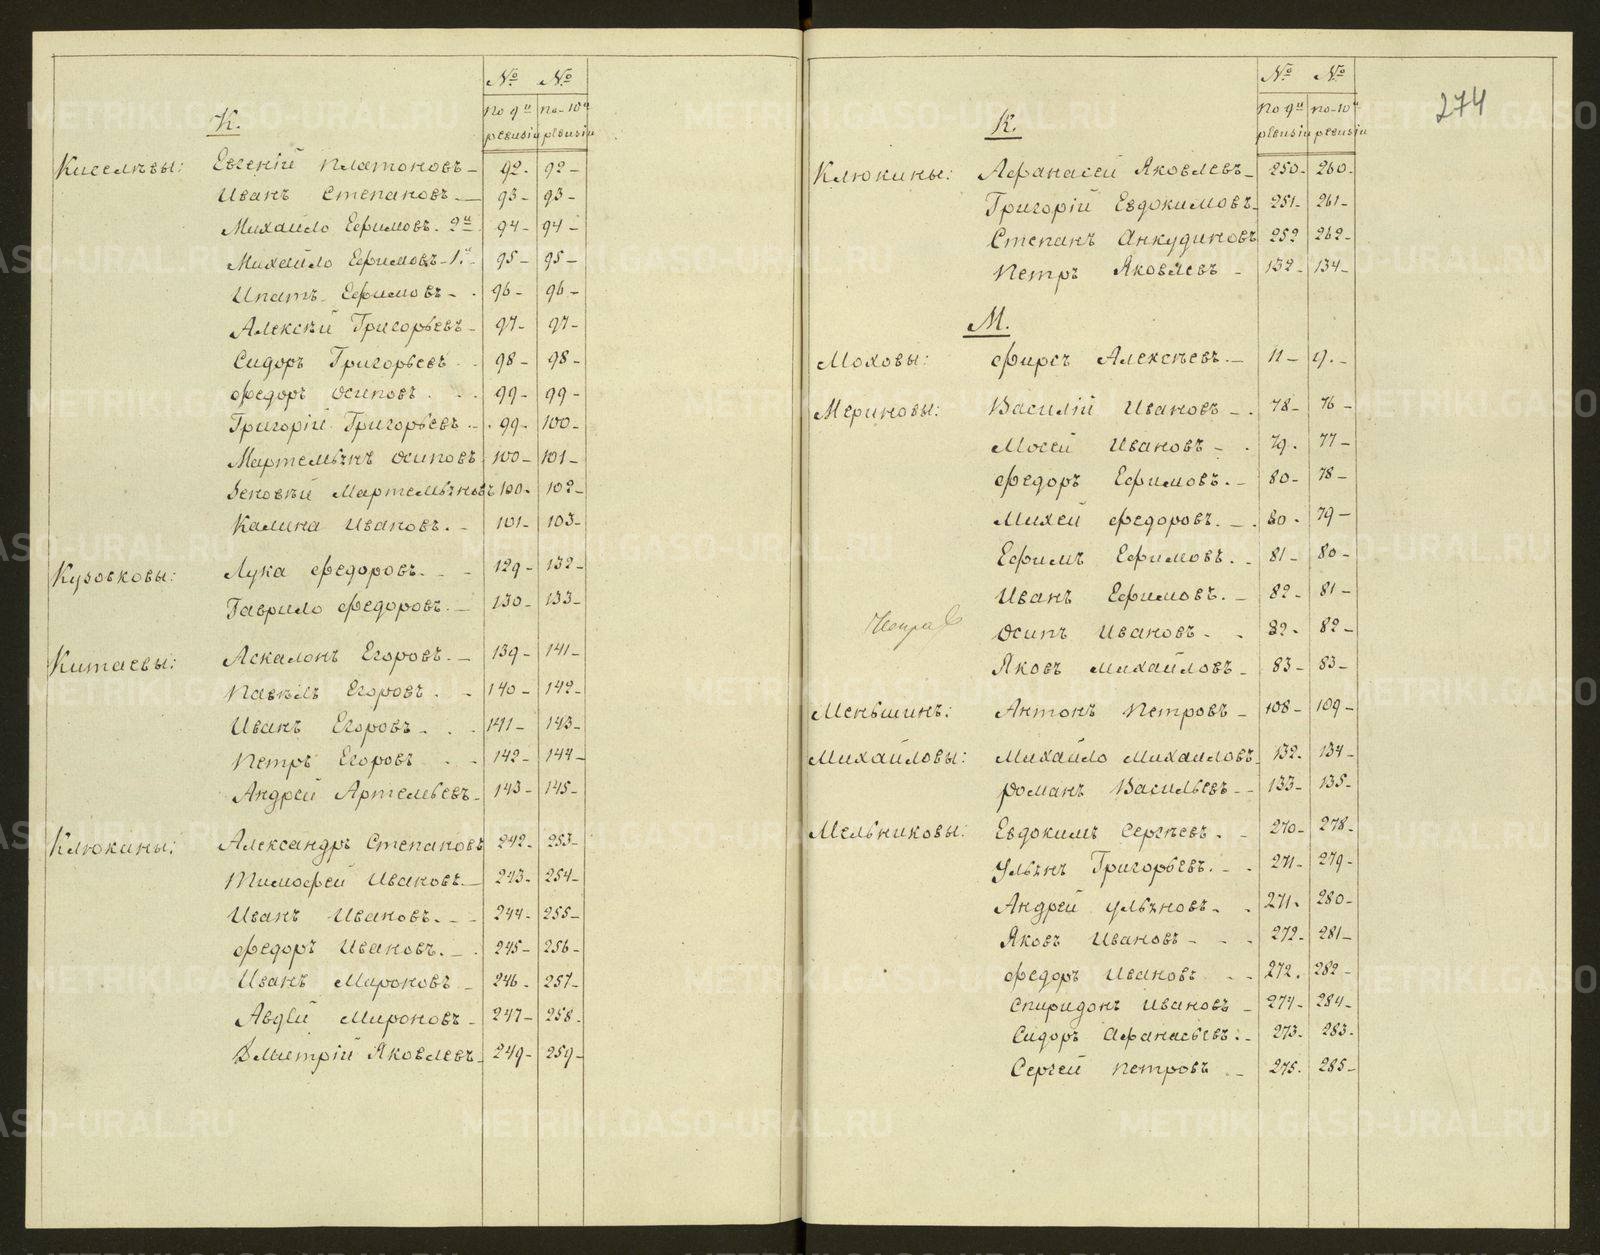 № №
По 9й ревизіи по 10й ревизіи
К.
Киселевы: Евгеній Платоновъ 92. 92
Иванъ Степановъ 93 93
Михайло Ефимовъ 2й 94 94
Михайло Ефимовъ 1й 95 95
Ипатъ Ефимовъ 96 96
Алексѣй Григорьевъ 97 97
Сидоръ Григорьевъ 98 98
Федоръ Осиповъ 99 99
Григорій Григорьевъ 99 100
Мартемьянъ Осиповъ 100 101
Зеновѣй Мартемьяновъ 100 102
Калина Ивановъ 101 103
Кузовковы: Лука Федоровъ 129 132
Гаврило Федоровъ 130 133
Китаевы: Аскалонъ Егоровъ 139 141
Павелъ Егоровъ 140 142
Иванъ Егоровъ 141 143
Петръ Егоровъ 142 144
Андрей Артемьевъ 143 145
Клюкины: Александръ Степановъ 242 253
Тимофей Ивановъ 243 254
Иванъ Ивановъ 244 255
Федоръ Ивановъ 245 256
Иванъ Мироновъ 246 257
Авдѣй Мироновъ 247 258
Дмитрій Яковлевъ 249 259
274
№ №
По 9й ревизіи по 10й ревизіи
К.
Клюкины: Афанасей Яковлевъ 250 260
Григорій Евдокимовъ 251 261
Степанъ Анкудиновъ 252 262
Петръ Яковлевъ 132 134
М.
Моховы: Фирсъ Алексѣевъ 11 9
Мериновы: Василій Ивановъ 78 76
Мосей Ивановъ 79 77
Федоръ Ефимовъ 80 78
Михей Федоровъ 80 79
Ефимъ Ефимовъ 81 80
Иванъ Ефимовъ 82 81
Осипъ Ивановъ 82 82
Яковъ Михайловъ 83 83
Меньшинъ: Антонъ Петровъ 108 109
Михайловы: Михайло Михайловъ 132 134
Романъ Васильевъ 133 135
Мельниковы: Евдокимъ Сергѣевъ 270 278
Ульянъ Григорьевъ 271 279
Андрей Ульяновъ 271 280
Яковъ Ивановъ 272 281
Федоръ Ивановъ 272 282
Спиридонъ Ивановъ 274 284
Сидоръ Афанасьевъ 273 283
Сергей Петровъ 275 285
METRIKI.GASO-URAL.RU